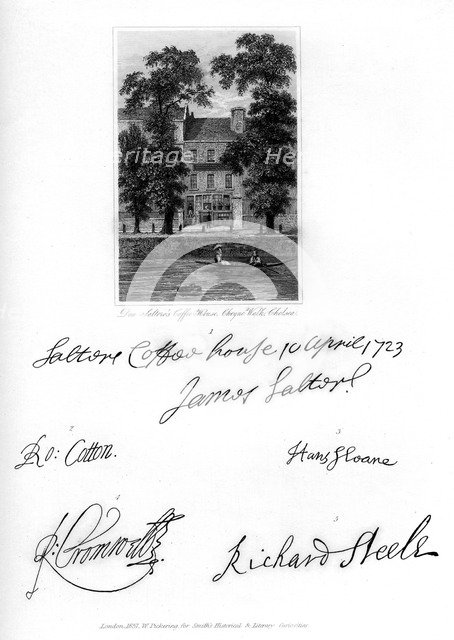 Heritage
He
Don Saltero's Coffee House, Cheyne Walk, Chelsea.
1
Saltero Coffoo house 10 April 1723
James Salter
2
Ro: Cotton.
3
Hans Sloane
4
R: Cromwell
5
Richard Steele
London, 1837, W. Pickering, for Smith's Historical & Literary Curiosities